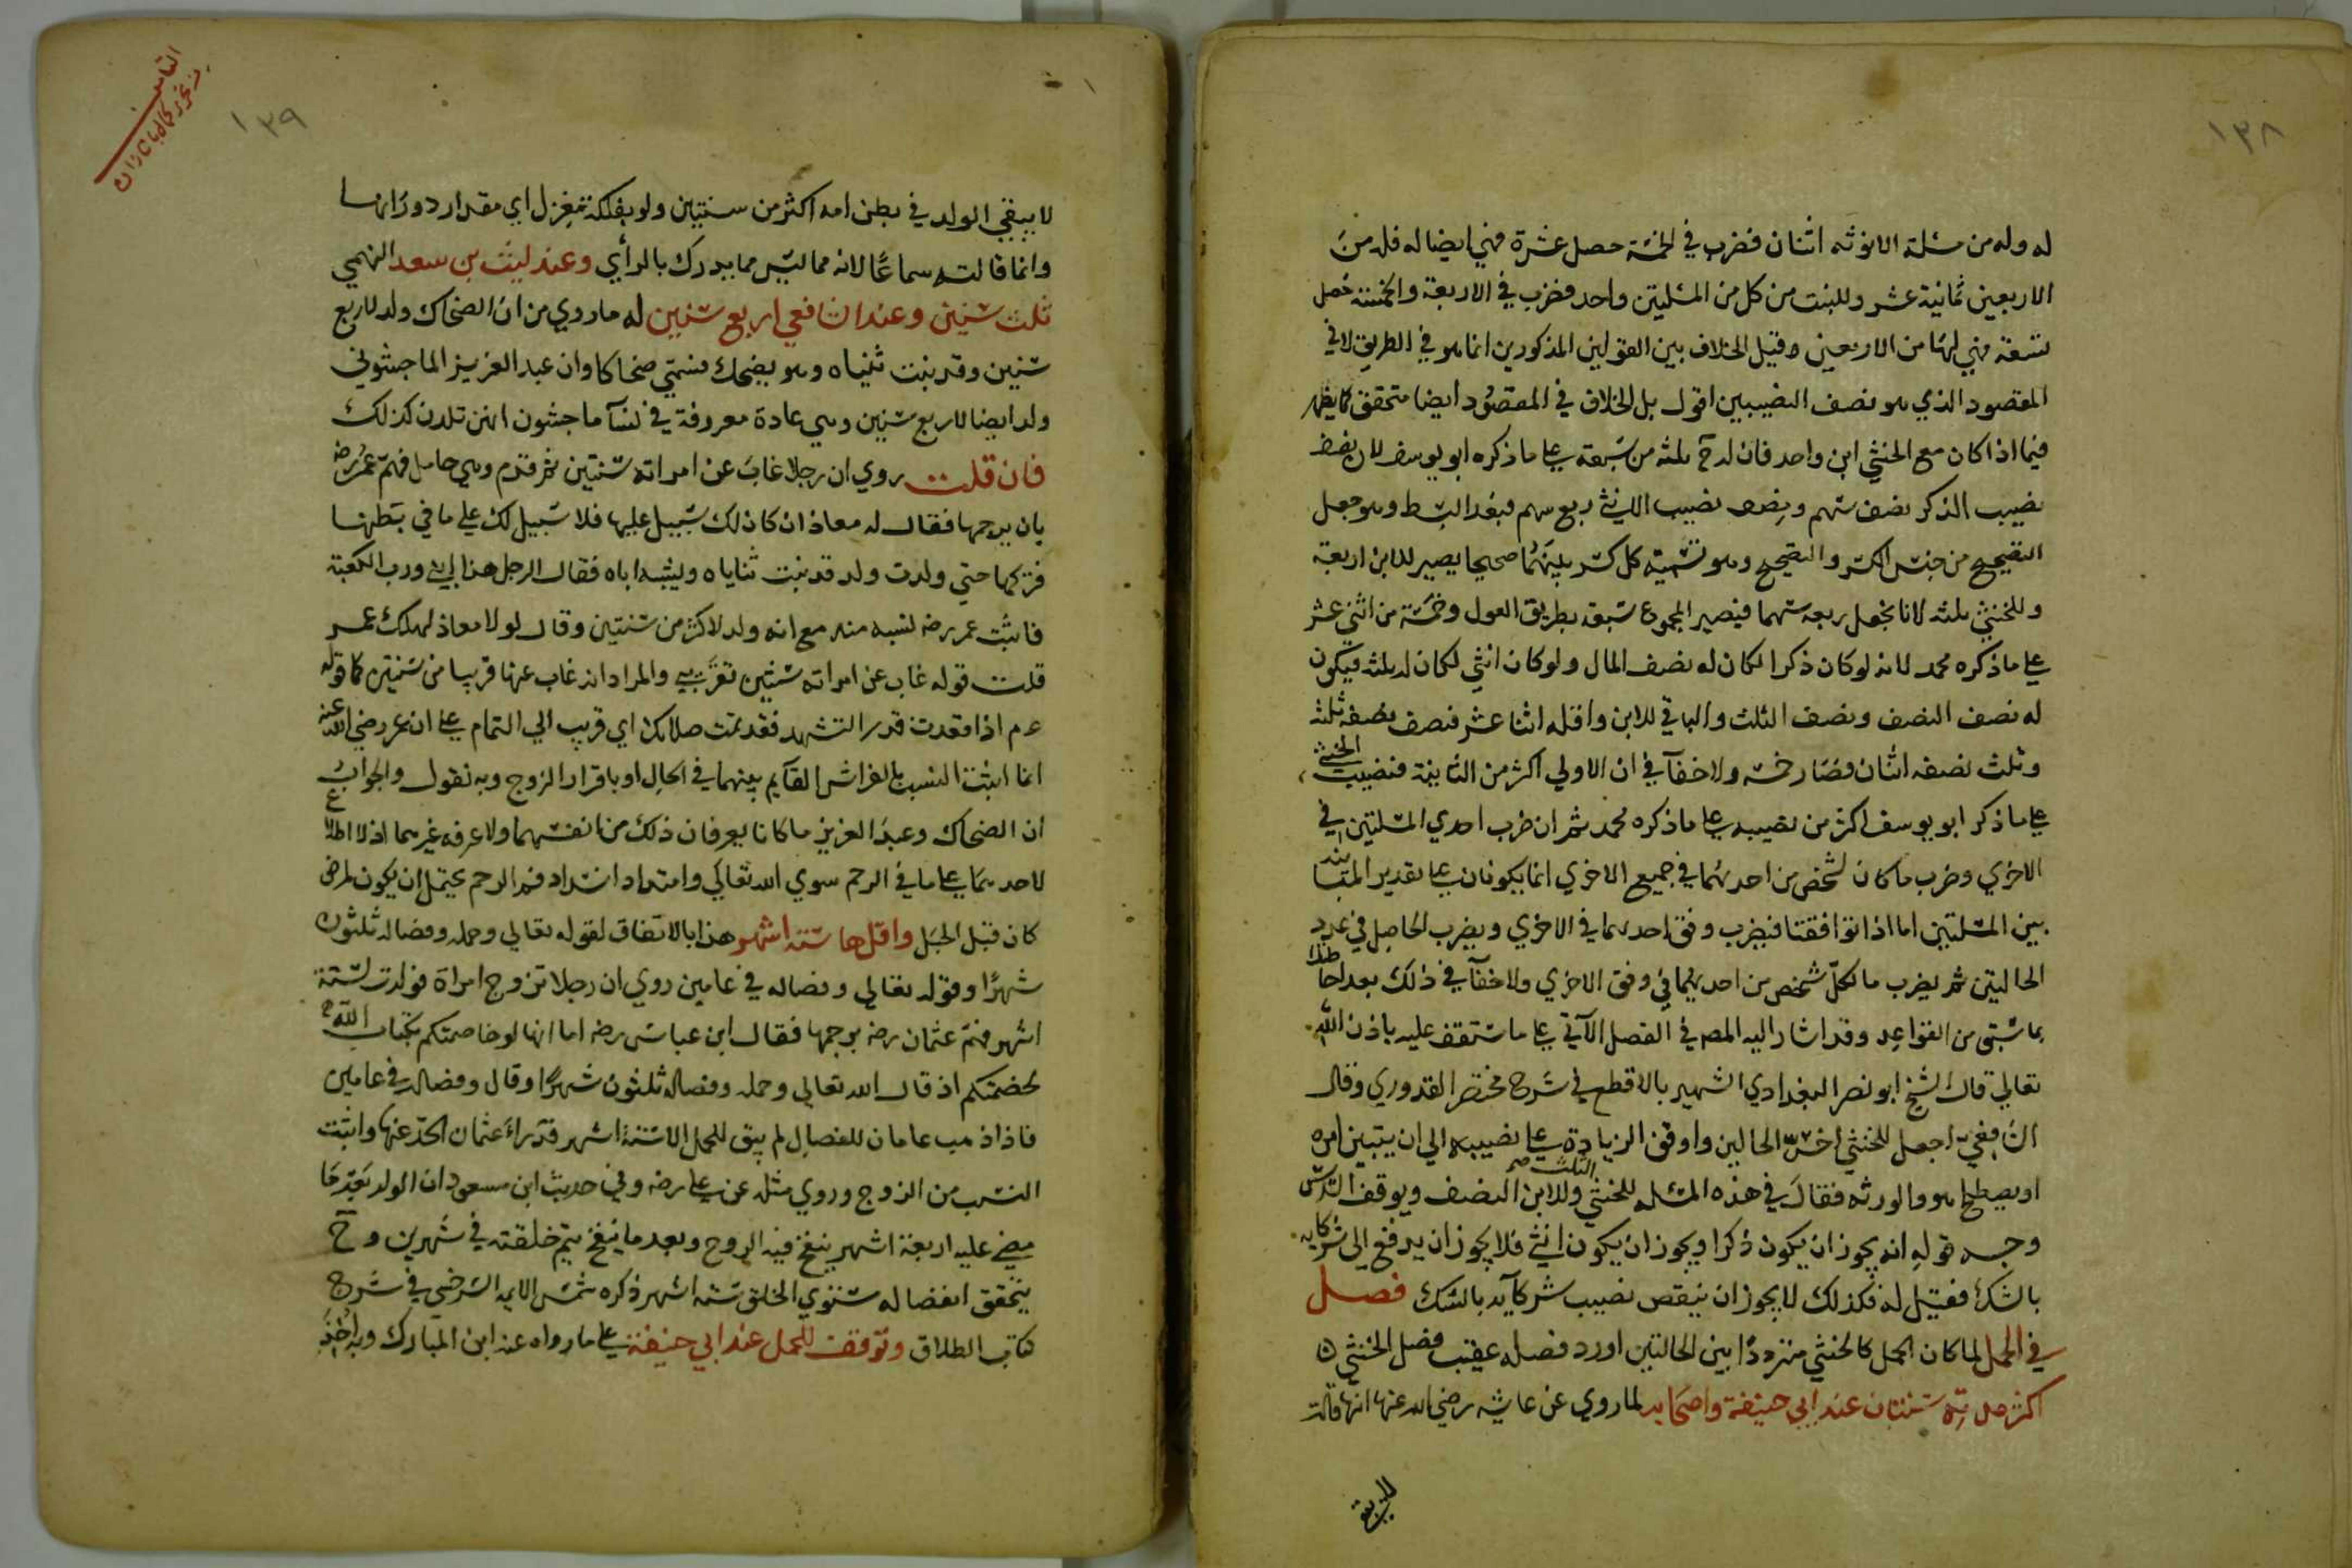 ١٣٨
له وله من مسئلة الانوثه اثنان فضرب في الخمسة حصل عشرة فهي ايضا له فله من
الاربعين ثمانية عشر وللبنت من كل من المسئلتين واحد فضرب في الاربعة والخمسة فحصل
تسعة فهي لها من الاربعين وقيل الخلاف بين القولين المذكورين انما هو في الطريق لا في
المقصود الذي هو نصف النصيبين اقول بل الخلاف في المقصود ايضا متحقق كما يظهر
فيما اذا كان مع الخنثي ابن واحد فان له ح ثلثه من سبعة علي ما ذكره ابو يوسف لان نصف
نصيب الذكر نصف سهم ونصف نصيب الانثي ربع سهم فبعد البسط وهو جعل
الصحيح من جنس الكسر والتصحيح وهو تسمية كل كسر بينهما صحيحا يصير للابن اربعة
وللخنثي ثلثه لانا نجعل ربعه سهما فيصير المجموع سبعة بطريق العول وخمسة من اثني عشر
علي ما ذكره محمد لانه لو كان ذكرا لكان له نصف المال ولو كان انثي لكان له ثلثه فيكون
له نصف النصف ونصف الثلث والباقي للابن واقله اثنا عشر فنصف نصفه ثلثه
وثلث نصفه اثنان فصار خمسه ولا خفآ في ان الاولي اكثر من الثانية فنصيب الخنثي
علي ما ذكر ابو يوسف اكثر من نصيبه علي ما ذكره محمد ثم ان ضرب احدي المسئلتين في
الاخري وضرب ما كان لشخص من احديهما في جميع الاخري انما يكونان علي تقدير المباينه
بين المسئلتين اما اذا توافقتا فيضرب وفق احديهما في الاخري ويضرب الحاصل في عدد
الحالتين ثم يضرب ما لكل شخص من احديهما في وفق الاخري ولا خفآ في ذلك بعد احاطتك
بما سبق من القواعد وقد اشار اليه المصـ في الفصل الآتي علي ما ستقف عليه باذن الله
تعالي قال الشيخ ابو نصر البغدادي الشهير بالاقطع في شرح مختصر القدوري وقال
الشافعي اجعل للخنثي اخس الحالين واوقف الزيادة علي نصيبه الي ان يتبين امره
او يصطلح هو والورثه فقال في هذه المسئله للخنثي الثلث صح وللابن النصف ويوقف السدس
وجه قوله انه يجوز ان يكون ذكرا ويجوز ان يكون انثي فلا يجوز ان يدفع الي شركايه
بالشك فقيل له فكذلك لا يجوز ان ينقص نصيب شركآيه بالشك فصل
في الحمل لما كان الحمل كالخنثي مترددا بين الحالتين اورد فصله عقيب فصل الخنثي
اكثر مدته سنتان عند ابي حنيفة واصحابه لما روي عن عايشه رضي الله عنها انها قالت
لا يبقي
١٣٩
لا يبقي الولد في بطن امه اكثر من سنتين ولو بفلكة مغزل اي مقدار دورانها
وانما قالته سماعا لانه مما ليس مما يدرك بالرأي وعند ليث بن سعد الفهمي
ثلث سنين وعند الشافعي اربع سنين له ما روي من ان الضحاك ولد لاربع
سنين وقد نبت ثنياه وهو يضحك فسمي ضحاكا وان عبد العزيز الماجشوني
ولد ايضا لاربع سنين وهي عادة معروفة في نسآ ماجشون انهن تلدن كذلك
فان قلت روي ان رجلا غاب عن امراته سنتين ثم قدم وهي حامل فهم عمر رضه
بان يرجمها فقال له معاذ ان كان لك سبيل عليها فلا سبيل لك علي ما في بطنها
فتركها حتي ولدت ولد قد نبت ثناياه ويشبه اباه فقال الرجل هذا ابني ورب الكعبة
فاثبت عمر رضه نسبه منه مع انه ولد لاكثر من سنتين وقال لولا معاذ لهلك عمر
قلت قوله غاب عن امراته سنتين تقريبي والمراد انه غاب عنها قريبا من سنتين كما قوله
عم اذا قعدت قدر التشهد فقد تمت صلاتك اي قريب الي التمام علي ان عمر رضي الله عنه
انما اثبت النسب بالفراش القآيم بينهما في الحال او باقرار الزوج وبه نقول والجواب
ان الضحاك وعبد العزيز ما كانا يعرفان ذلك من انفسهما ولا عرفه غيرهما اذ لا اطلاع
لاحد علي ما في الرحم سوي الله تعالي وامتداد انسداد فم الرحم يحتمل ان يكون لمرض
كان قبل الحبل واقلها ستة اشهر هذا بالاتفاق لقوله تعالي وحمله وفصاله ثلثون
شهرا وقوله تعالي وفصاله في عامين روي ان رجلا تزوج امراة فولدت لستة
اشهر فهم عثمان رضه برجمها فقال ابن عباس رضه اما انها لو خاصمتكم بكتاب الله
لخصمتكم اذ قال الله تعالي وحمله وفصاله ثلثون شهرا وقال وفصاله في عامين
فاذا ذهب عامان للفصال لم يبق للحمل الا ستة اشهر فدراء عثمان الحد عنها واثبت
النسب من الزوج وروي مثله عن علي رضه وفي حديث ابن مسعود ان الولد بعد ما
يمضي عليه اربعة اشهر ينفخ فيه الروح وبعد ما ينفخ يتم خلقته في شهرين وح
يتحقق انفصاله مستوي الخلق ستة اشهر ذكره شمس الايمه السرخسي في شرح
كتاب الطلاق وتوقف للحمل عند ابي حنيفة علي ما رواه عنه ابن المبارك وبه اخذ